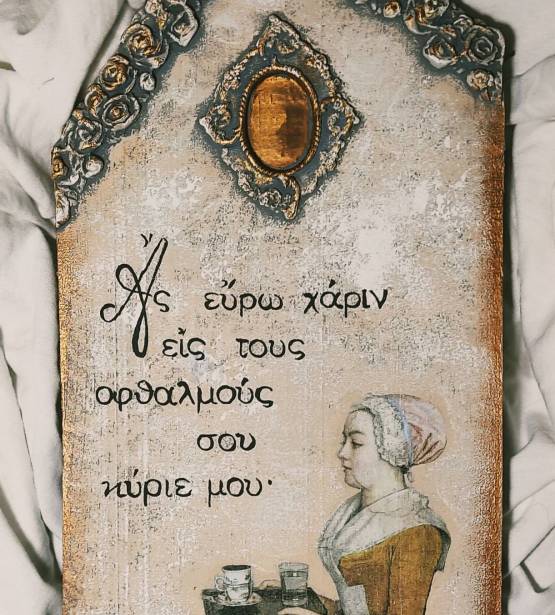 Ἄς εὕρω χάριν
εἰς τους
οφθαλμούς
σου
κύριε μου·